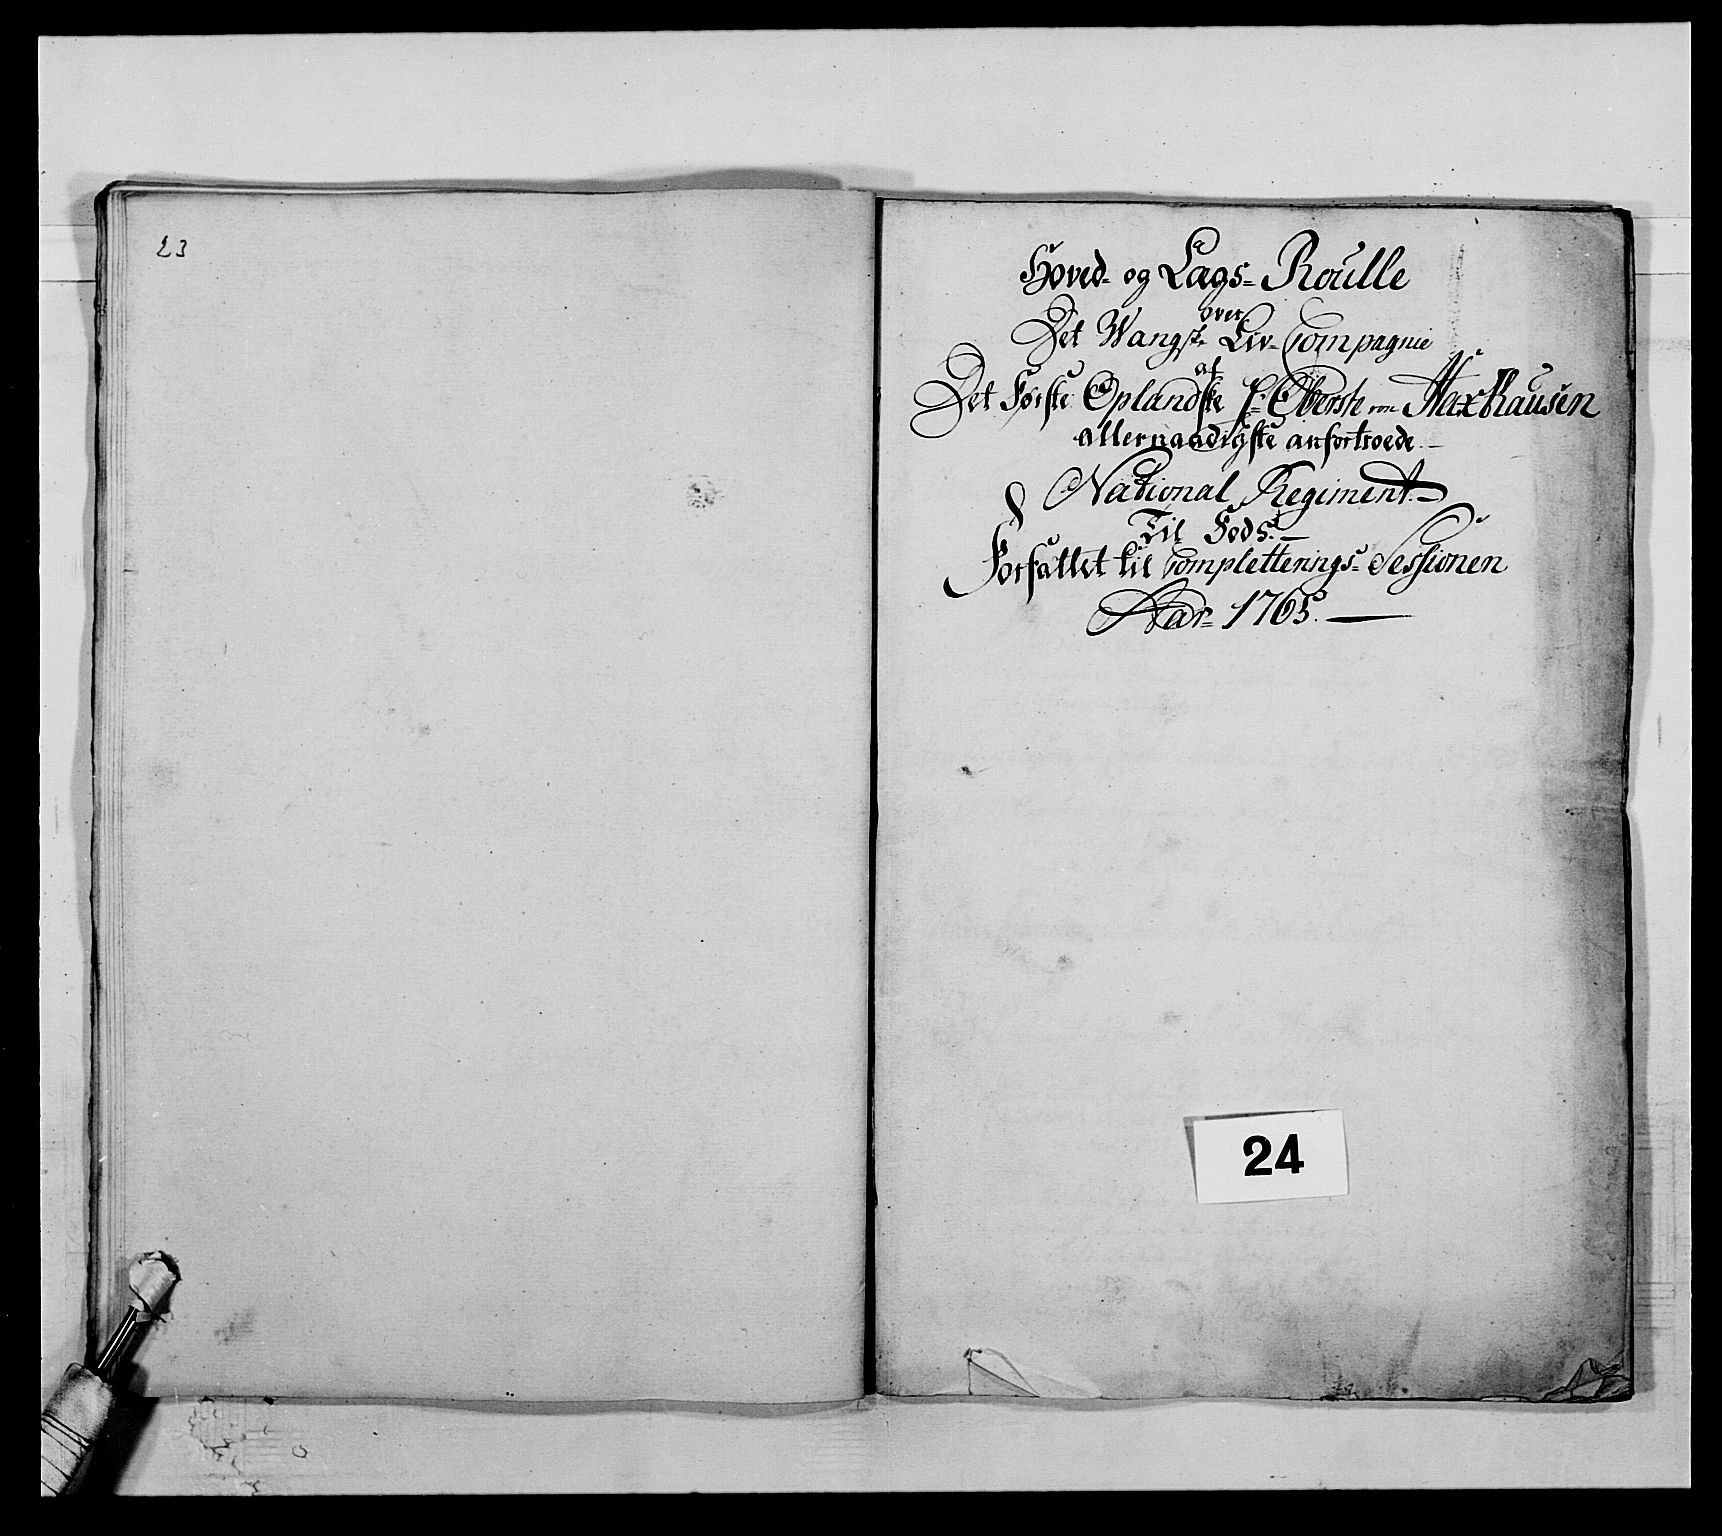 23
Hoved- og Lags- Roulle
over
Det Wangske Liv-Compagnie
af
Det Første Oplandske H: Oberste von Haxthausen
allernaadigste anfortroede.
National Regiment.
Til Fods.
Forfattet til Completterings- Sessionen
Aar- 1765.
24